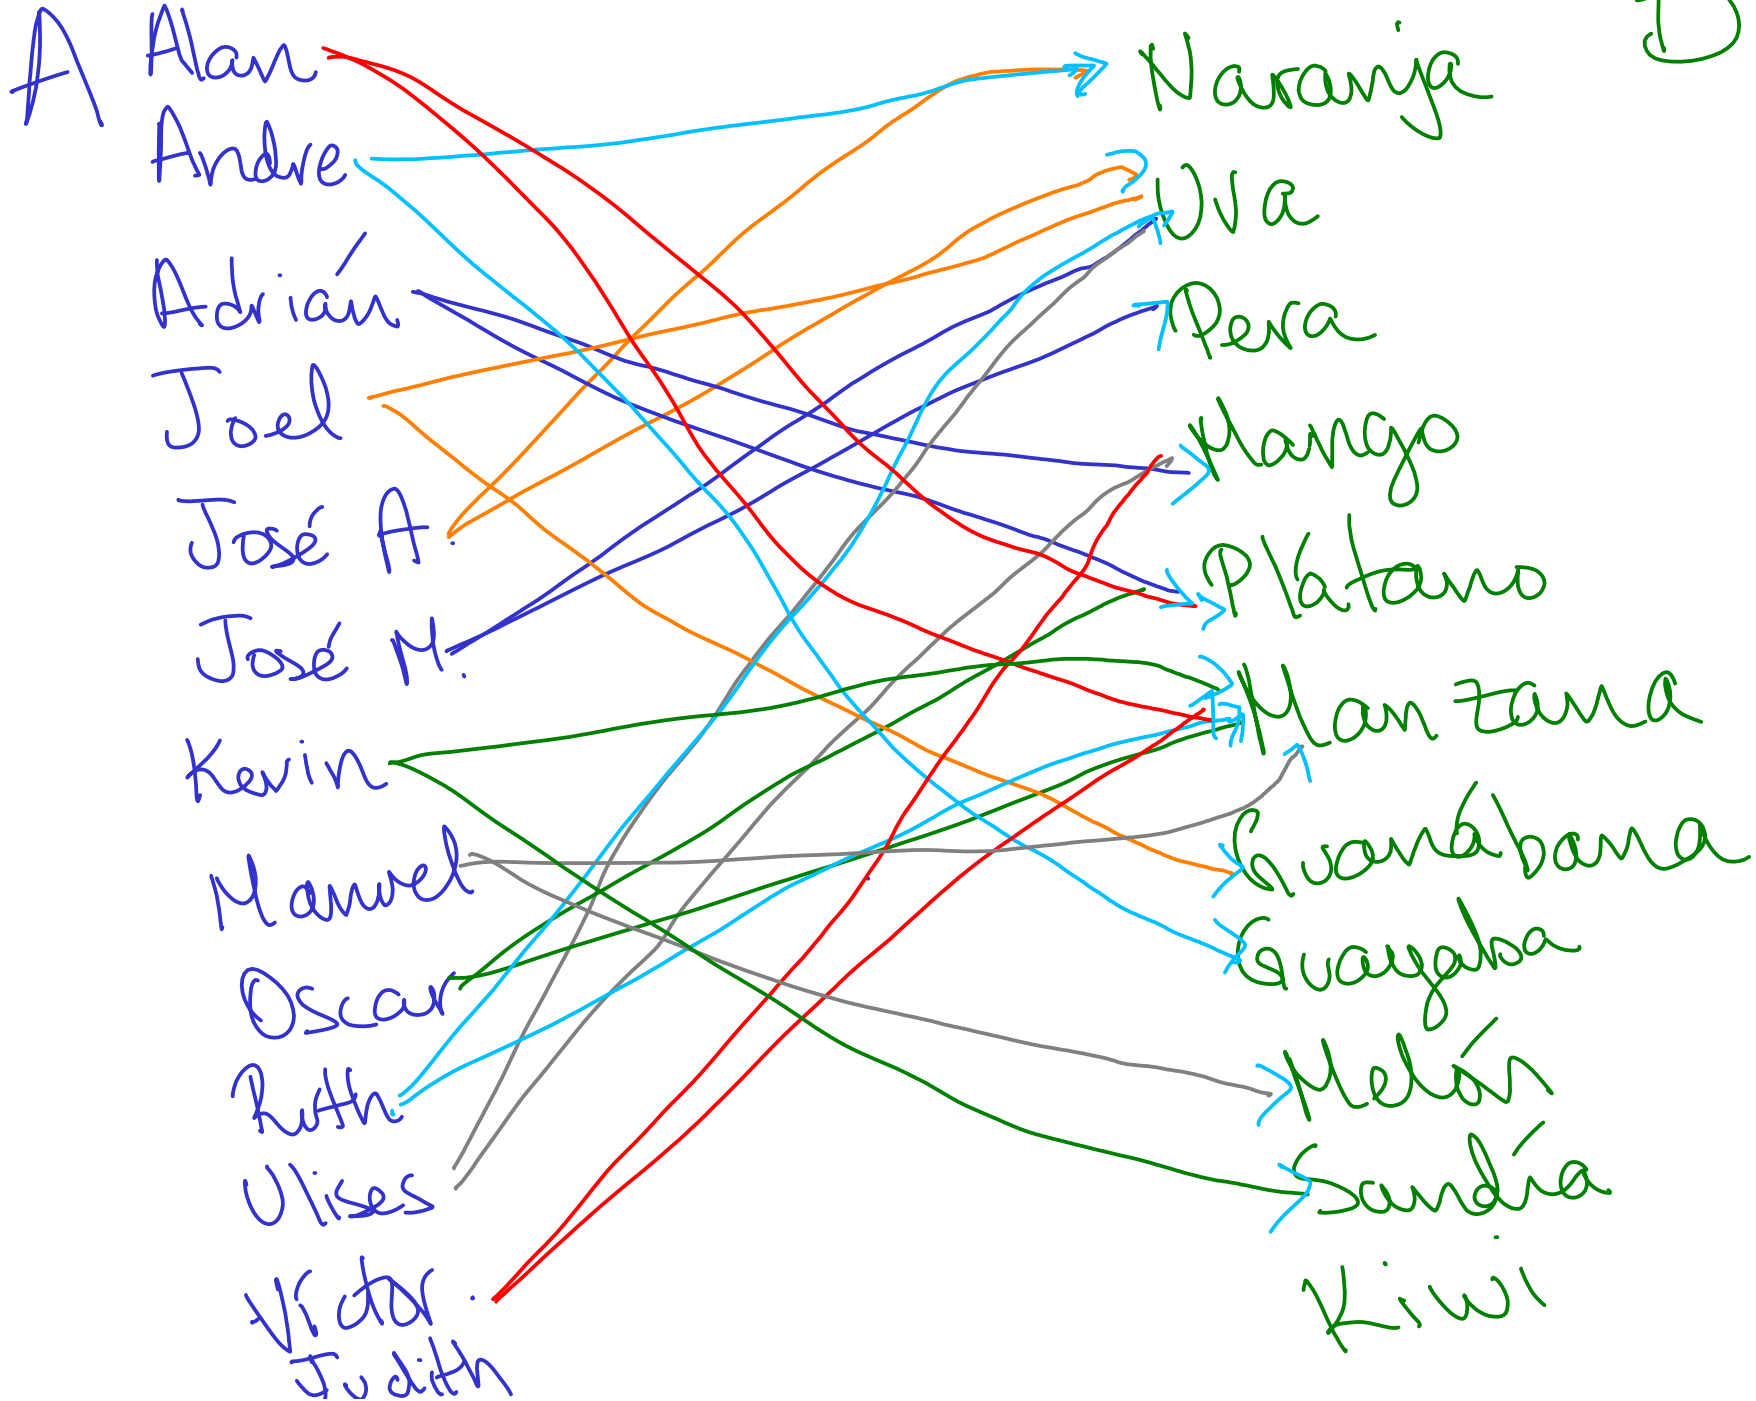 A
Alan
Andre
Adrián
Joel
José A.
José M.
Kevin
Manuel
Oscar
Ruth
Ulises
Víctor
Judith
Naranja
Uva
Pera
Mango
Plátano
Manzana
Guanábana
Guayaba
Melón
Sandía
Kiwi